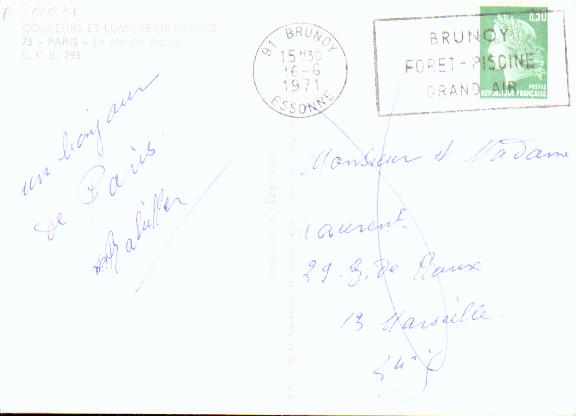 COULEURS ET LUMIERE DE FRANCE
75 - PARIS - Le Moulin Rouge
E. K. B. 795
un bonjour
de Paris
91 BRUNOY
15 H 30
16-6
1971
ESSONNE
BRUNOY
FORET - PISCINE
GRAND AIR
0,30
POSTES
REPUBLIQUE FRANÇAISE
Monsieur et Madame
Laurent
29. B. de Roux
13 Marseille